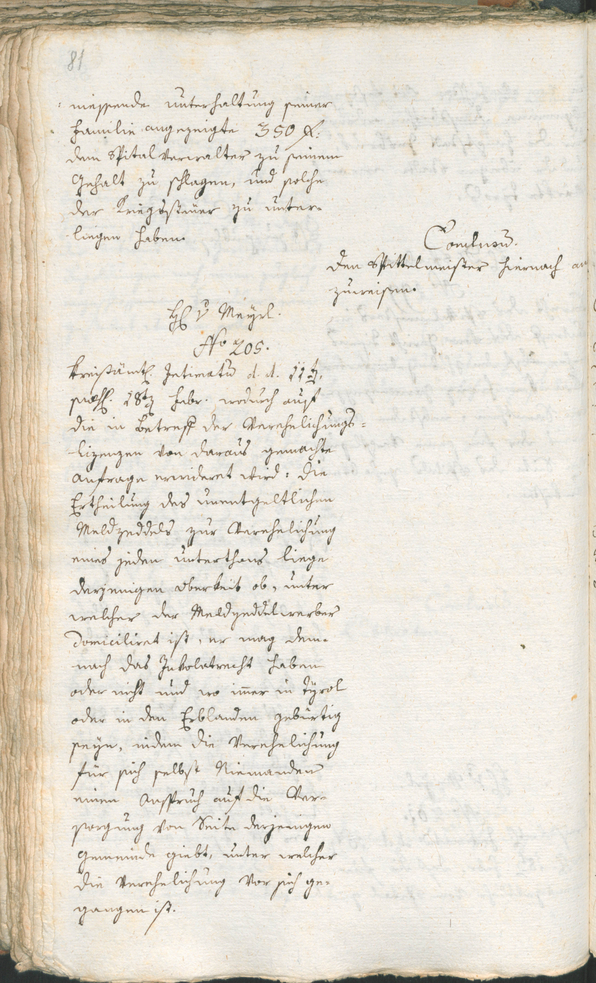 81
niessende Unterhaltung seiner
Familie angezeigte 350 f.
dem Spitalverwalter zu seinem
Gehalt zu schlagen, und solche
der Kriegssteuer zu unter-
liegen haben.
Conclusum.
den Spittelmeister hiernach an
zuweisen.
H v Meyrl.
No 205.
Kreisämtl. Intimatum d. d. 11t
 18t Febr. wodurch auf
die in Betreff der Verehelichungs-
Lizenzen von daraus gemachte
Anfrage erwideret wird: die
Ertheilung des unentgeltlichen
Meldzeddels zur Verehelichung
eines jeden Unterthans liege
derjenigen Obrkeit ob, unter
welcher der Meldzeddelwerber
domiciliret ist, er mag dem-
nach das Inkolatrecht haben
oder nicht und wo immer in Tyrol
oder in den Erblanden gebürtig
seyn, indem die Verehelichung
für sich selbst Niemanden
einen Anspruch auf die Ver-
sorgung von Seite derjenigen
Gemeinde giebt, unter welcher
die Verehelichung vor sich ge-
gangen ist.